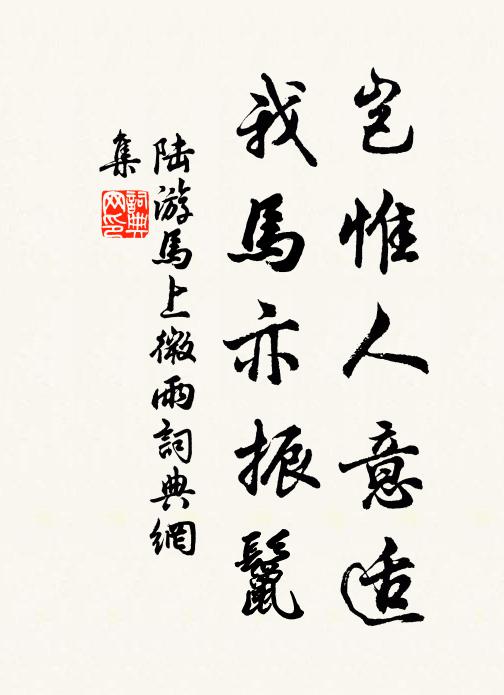 岂惟人意适
我馬亦振鬣
陆游馬上微雨詞典網
集
詞典网印